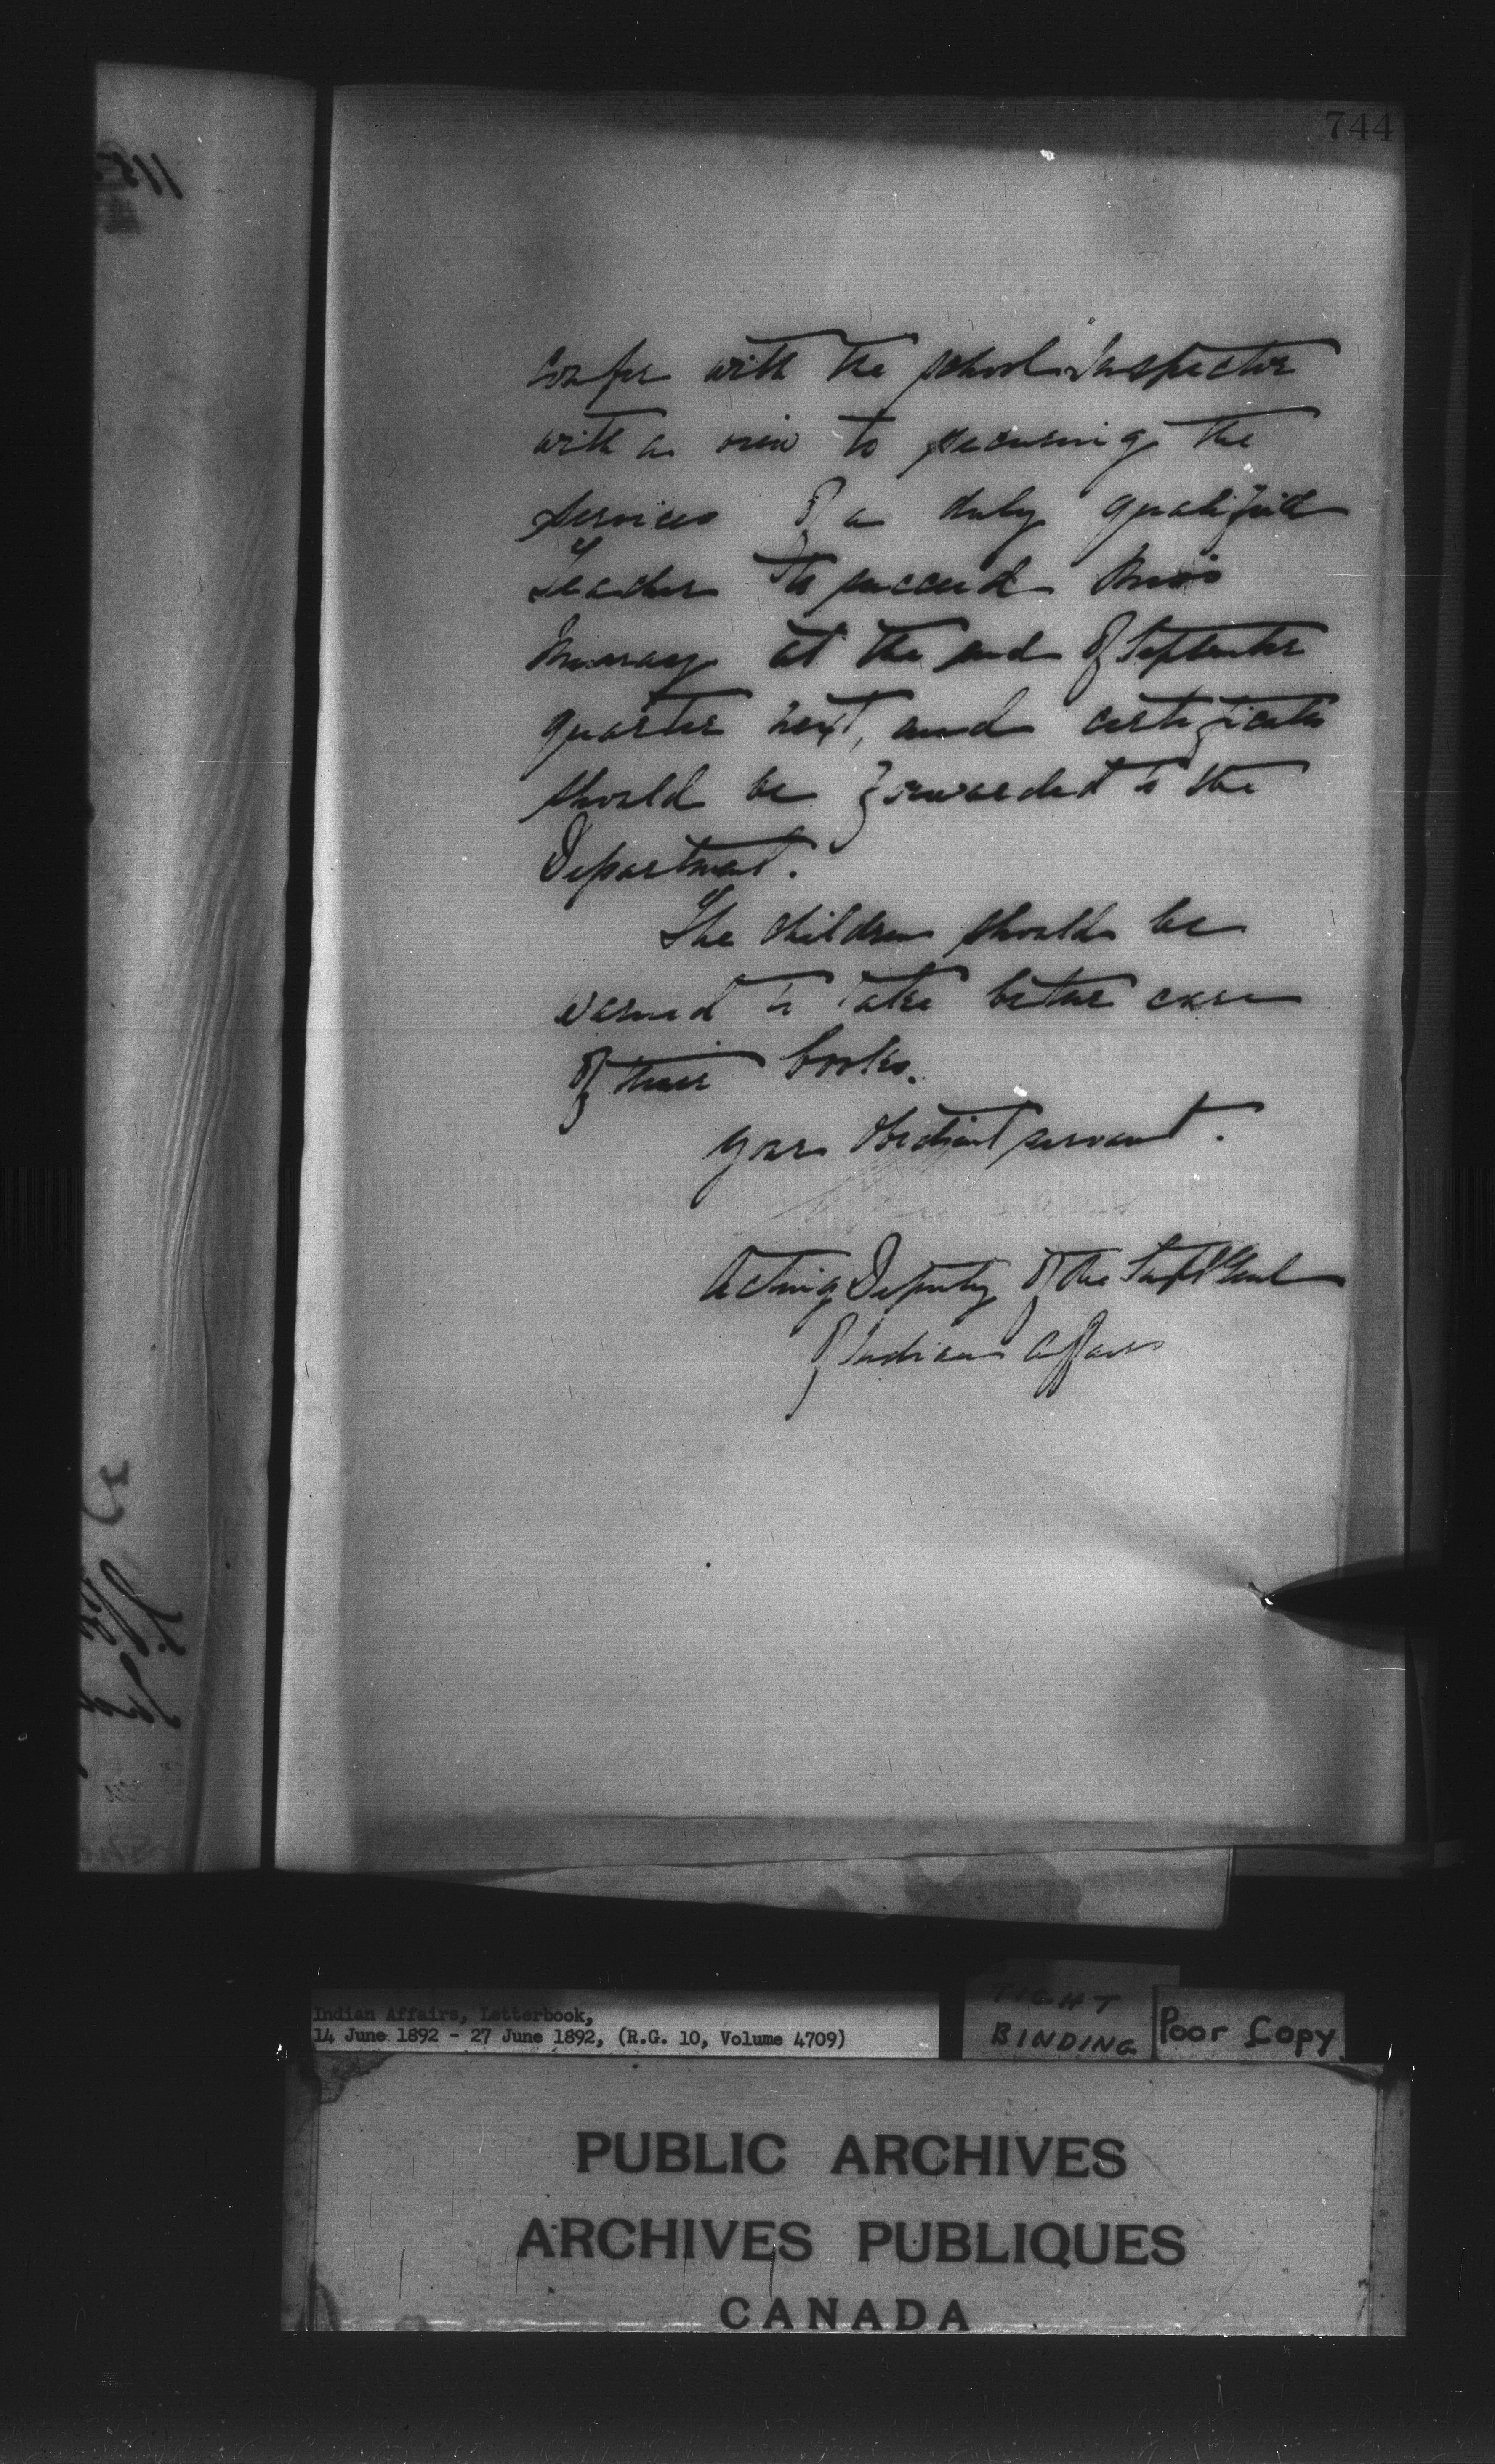 744
confer with the school Inspector
with a view to securing the
services of a duly qualified
Teacher to succeed Miss
Murray at the end of September
quarter next, and certificate
should be forwarded to the
Department.
The children should be
warned to take better care
of their books.
Your obedient servant.
Acting Deputy of the Supt Genl
of Indian Affairs
Indian Affairs, Letterbook,
14 June 1892 - 27 June 1892, (R.G. 10, Volume 4709)
TIGHT
BINDING
Poor Copy
PUBLIC ARCHIVES
ARCHIVES PUBLIQUES
CANADA